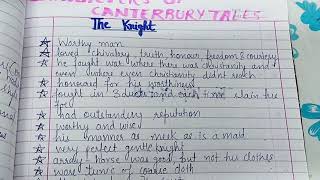 CHARACTERS OF
CANTERBURY TALES
The Knight
☆ Worthy man
☆ loved chivalry, truth, honour, freedom & courtesy
☆ he fought war where there was christianity and
even where even christianity didnt reach
☆ honoured for his worthiness
☆ fought in 3 duels and each time slain his
foe
☆ had outstanding reputation
☆ worthy and wise
☆ his manner as meek as is a maid
☆ very perfect gentle knight
☆ array - horse was good, but not his clothes
☆ wore tunic of coarse cloth